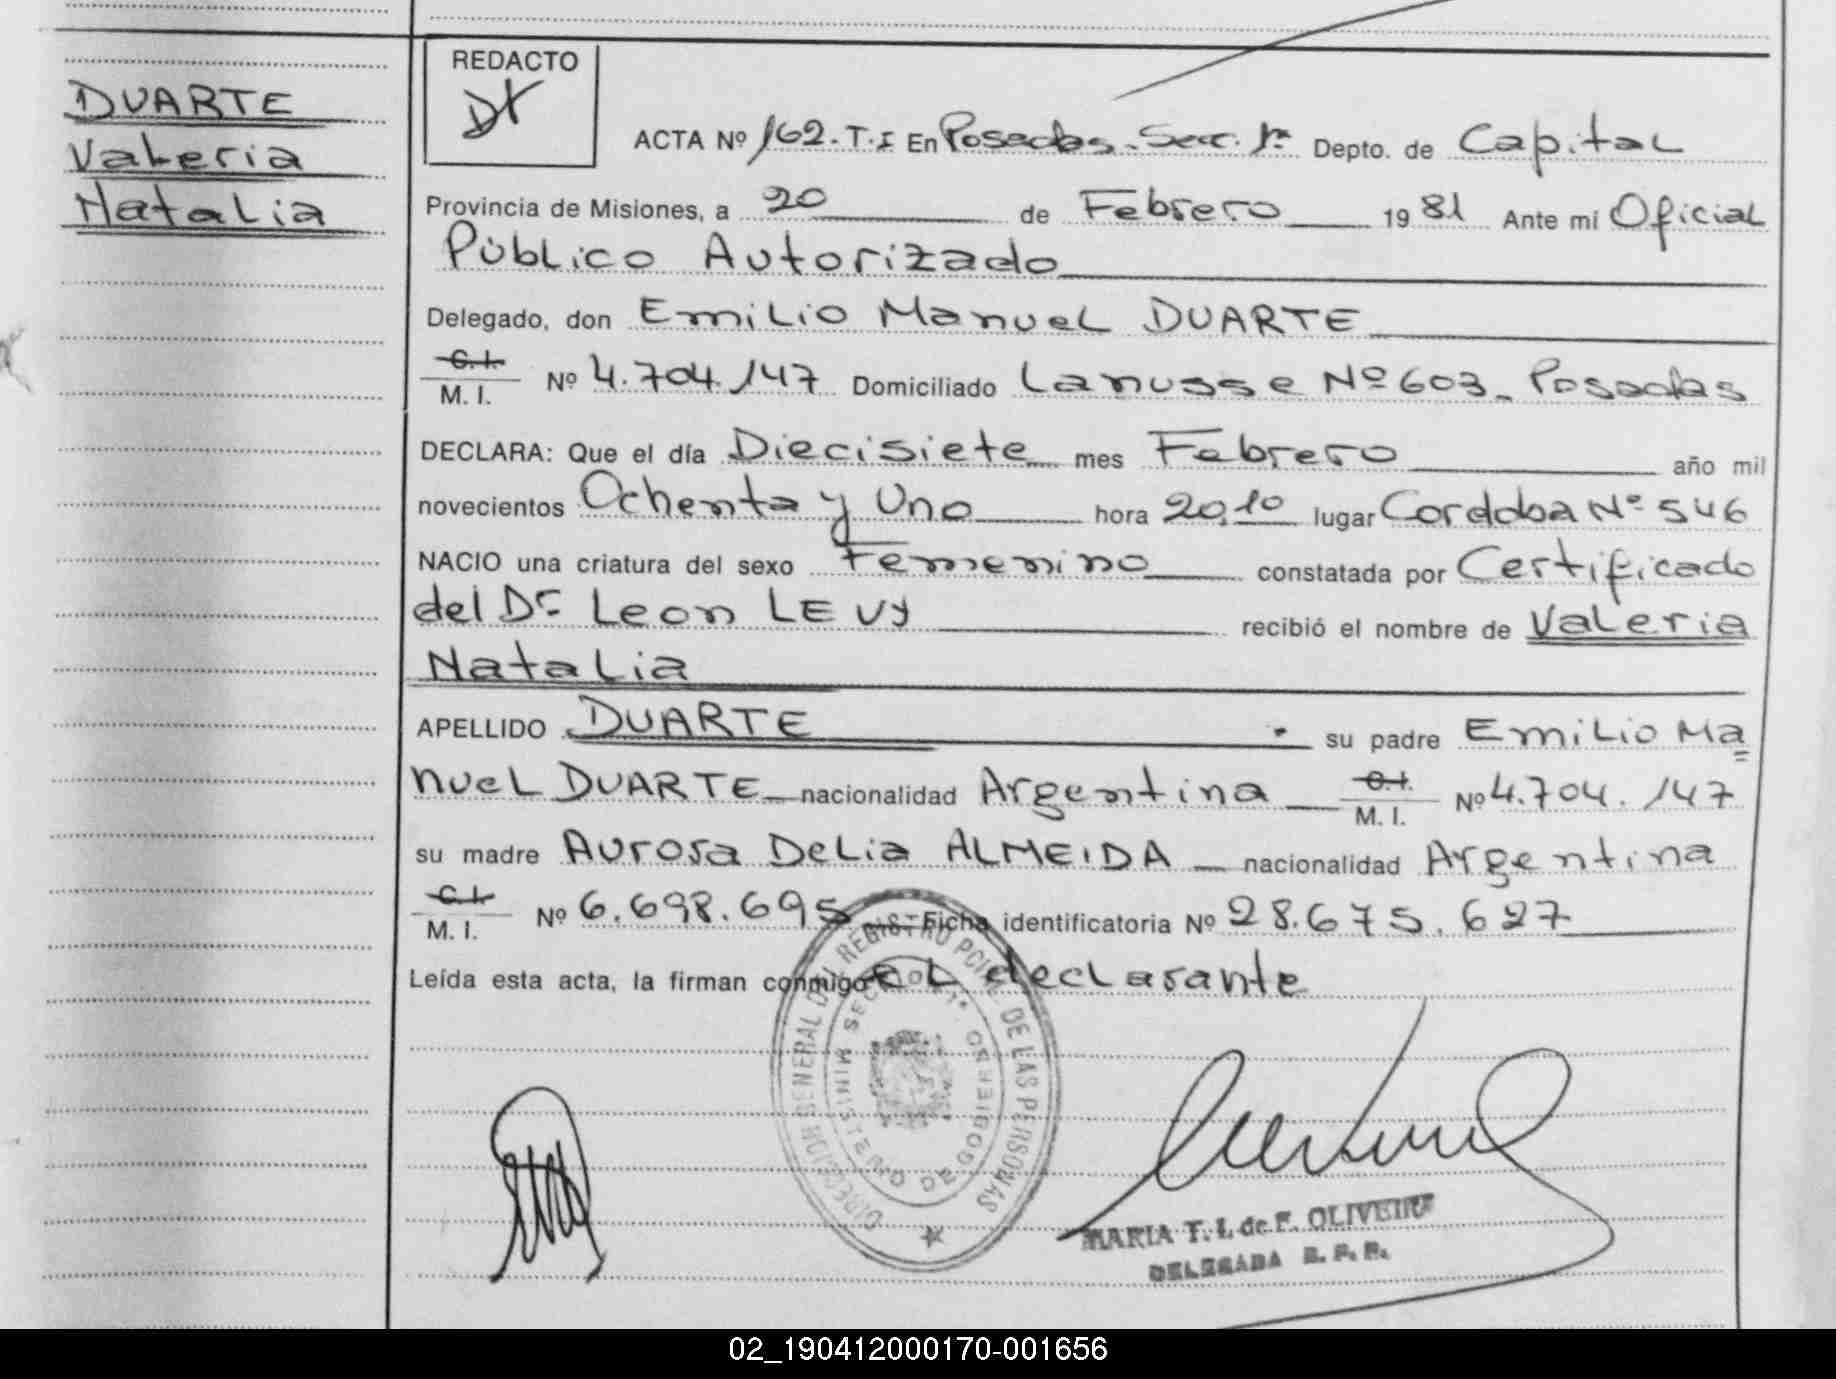 DUARTE
Valeria
Natalia
REDACTO
ACTA Nº 162. T. I En Posadas. Secc. 1ª Depto. de Capital
Provincia de Misiones, a 20 de Febrero 19 81 Ante mi Oficial
Público Autorizado
Delegado, don Emilio Manuel DUARTE
C.I.
M. I. Nº 4.704.147 Domiciliado Lanusse Nº 603_ Posadas
DECLARA: Que el día Diecisiete mes Febrero año mil
novecientos Ochenta y Uno hora 20,10 lugar Cordoba Nº 546
NACIO una criatura del sexo Femenino constatada por Certificado
del Dr Leon LEVY recibió el nombre de Valeria
Natalia
APELLIDO DUARTE su padre Emilio Ma
nuel DUARTE nacionalidad Argentina C.I.
M. I. Nº 4.704.147
su madre Aurora Delia ALMEIDA nacionalidad Argentina
C.I.
M. I. Nº 6.698.695 Ficha identificatoria Nº 28.675.627
Leída esta acta, la firman conmigo el declarante
DIRECCION GENERAL DEL REGISTRO PCIAL DE LAS PERSONAS
MINISTERIO DE GOBIERNO
SECCION 1ª
MARIA T. I. de F. OLIVEIRA
DELEGADA R. P. P.
02_190412000170-001656